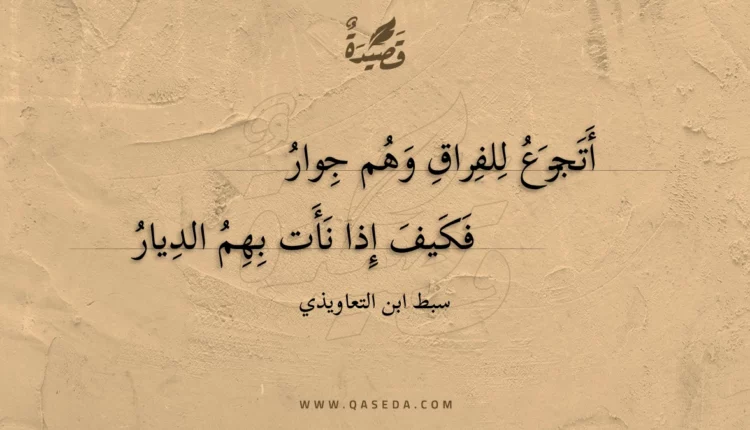 قَصِيدَةٌ
أَتَجزَعُ لِلفِراقِ وَهُم جِوارُ
فَكَيفَ إِذا نَأَت بِهِمُ الدِيارُ
سبط ابن التعاويذي
WWW.QASEDA.COM